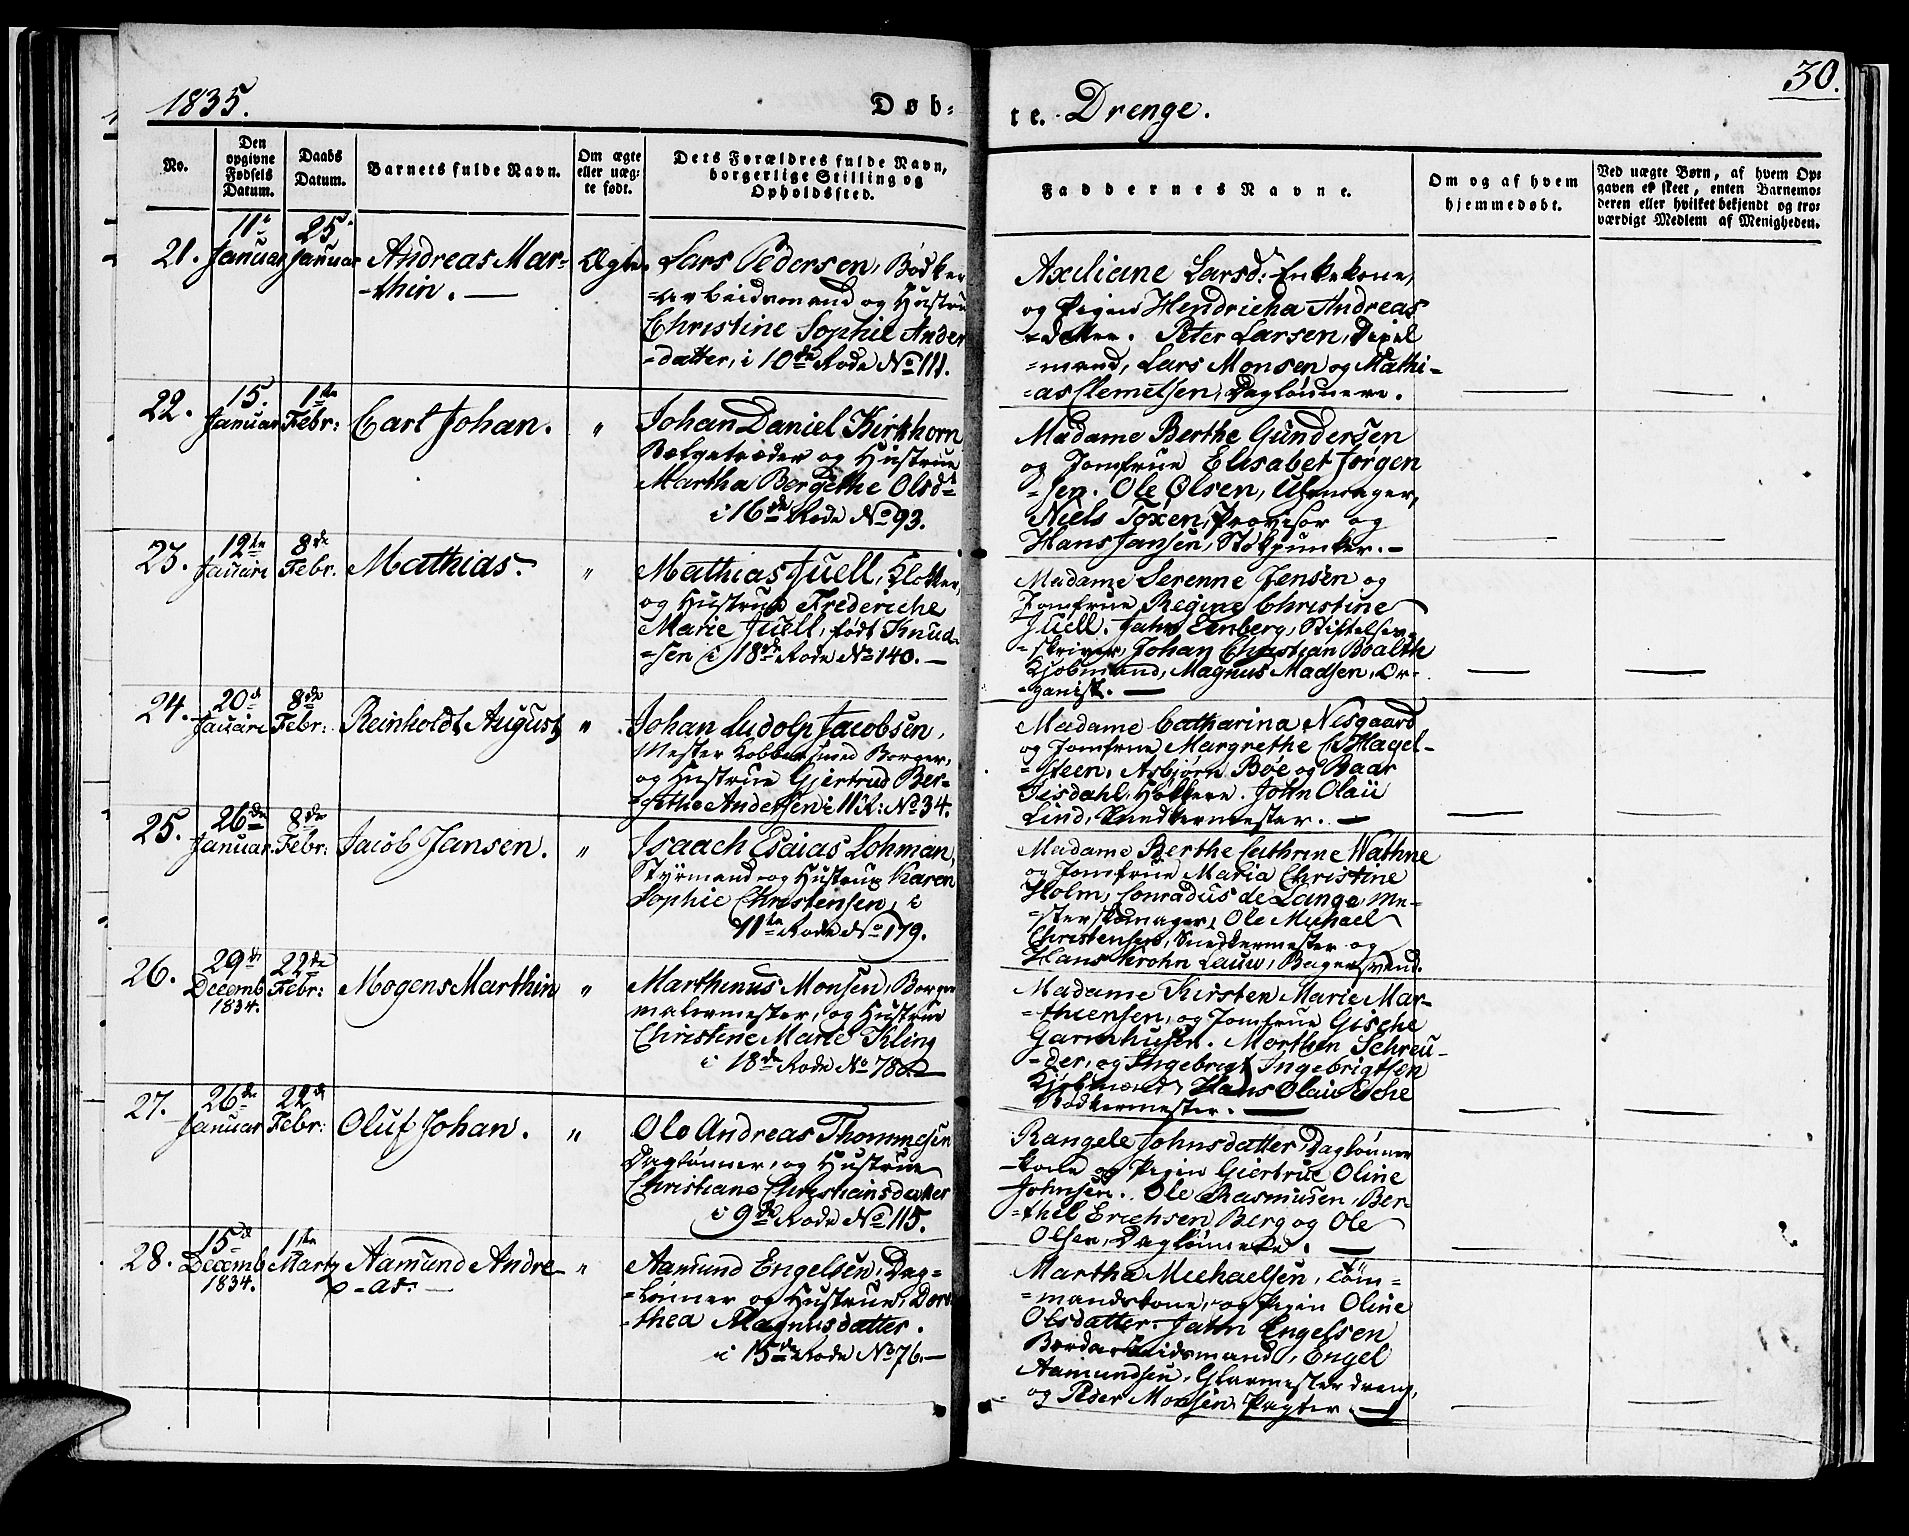 1835.
Døb-
te. Drenge.
30.
No.
Den opgivne Fødsels Datum.
Daabs Datum.
Barnets fulde Navn.
Om ægte eller uægte født.
Dets Forældres fulde Navn, borgerlige Stilling og Opholdssted.
Faddernes Navne.
Om og af hvem hjemmedøbt.
Ved uægte Børn, af hvem Opgaven er skeet, enten Barnemoderen eller hvilket bekjendt og troværdigt Medlem af Menigheden.
21.
11te
Januar
25.
Januar
Andreas Mar-
-thin. —
Ægte.
Lars Pedersen, Bødker
-arbeidsmand og Hustru
Christine Sophie Ander
-datter, i 10de Rode No 111.
Axeliane Larsd: Enkekone,
og Pigen Hendricha Andreas
-datter. Peter Larsen,
-mand, Lars Monsen og Mathi-
-as Clemetsen, Daglønnere.
22.
15.
Januar
1ste
Febr:
Carl Johan.
"
Johan Daniel Kirkhorn
Belgetræder og Hustrue
Martha Bergethe Olsd-
i 16de Rode No 93.
Madame Berthe Gundersen
og Jomfrue Elisabet Jørgen
-sen. Ole Olsen, Uhrmager,
Niels Toxen, Provisor og
Hans Jansen, . —
23.
12te
Januari
8de
Febr.
Mathias.
"
Mathias Juell, Klokker,
og Hustrue Frederiche
Marie Juell, født Knud-
-sen i 18de Rode No 140. —
Madame Serenne Jensen og
Jomfrue Regine Christine
Juell. Jahn Eenberg, Stiftelses-
-skriver, Johan Christian Boalth
Kjøbmand, Magnus Madsen, Or-
-ganist. —
24.
20de
Januari
8de
Febr:
Reinholdt August
"
Johan Ludolp Jacobsen,
Mester Kobbersmed Borger,
og Hustrue Gjertrud Ber-
-githe Andersen i 11 R: No 34.
Madame Catharina Nesgaard
og Jomfrue Margrethe C. Hagel-
-steen, Asbjørn Bøe og Baar
Teisdahl, Høkkere. John Olaii
Lind, Snedkermester. —
25.
26de
Januar
8de
Febr:
Jacob Jansen.
"
Isaach Esaias Lohman,
Styrmand og Hustrue Karen
Sophie Christensen, i
11te Rode No 179.
Madame Berthe Cathrine Wathne
og Jomfrue Maria Christine
Holm, Conradus de Lange, Me-
-sterskomager, Ole Michael
Christensen, Snedkermester og
Hans Krohn Lauw, Bagersvend.
26.
29de
Decemb
1834.
22de
Febr:
Mogens Marthin
"
Marthinus Monsen, Borger
malermester, og Hustrue
Christine Marie Kling
i 18de Rode No 78. —
Madame Kirsten Marie Mar-
-thiensen, og Jomfrue Gische
Garmhusen. Morthen Schreu-
-der, og Ingebrigt Ingebrigtsen
Kjøbmænd, Hans Olai Esche
Bødkermester. —
27.
26de
Januar
22de
Febr:
Oluf Johan.
"
Ole Andreas Thommesen
Daglønner, og Hustrue
Christiane Christiansdatter
i 9de Rode No 115.
Rangele Johnsdatter, Daglønner
-kone og Pigen Giertrue Oline
Johnsen. Ole Rasmusen, Ber-
-thel Erichsen Berg og Ole
Olsen, Daglønnere. —
28.
15de
Decemb
1834.
1ste
Marty
Aamund Andre-
-as. —
"
Aamund Engelsen, Dag-
-lønner og Hustrue, Doro
-thea Magnusdatter.
i 15de Rode No 76. —
Martha Michaelsen, Tøm-
-mandskone, og Pigen Oline
Olsdatter. Jahn Engelsen
Bordarbeidsmand, Engel
Aamundsen, Glarmesterdreng,
og Peder Monsen, Pagter. —